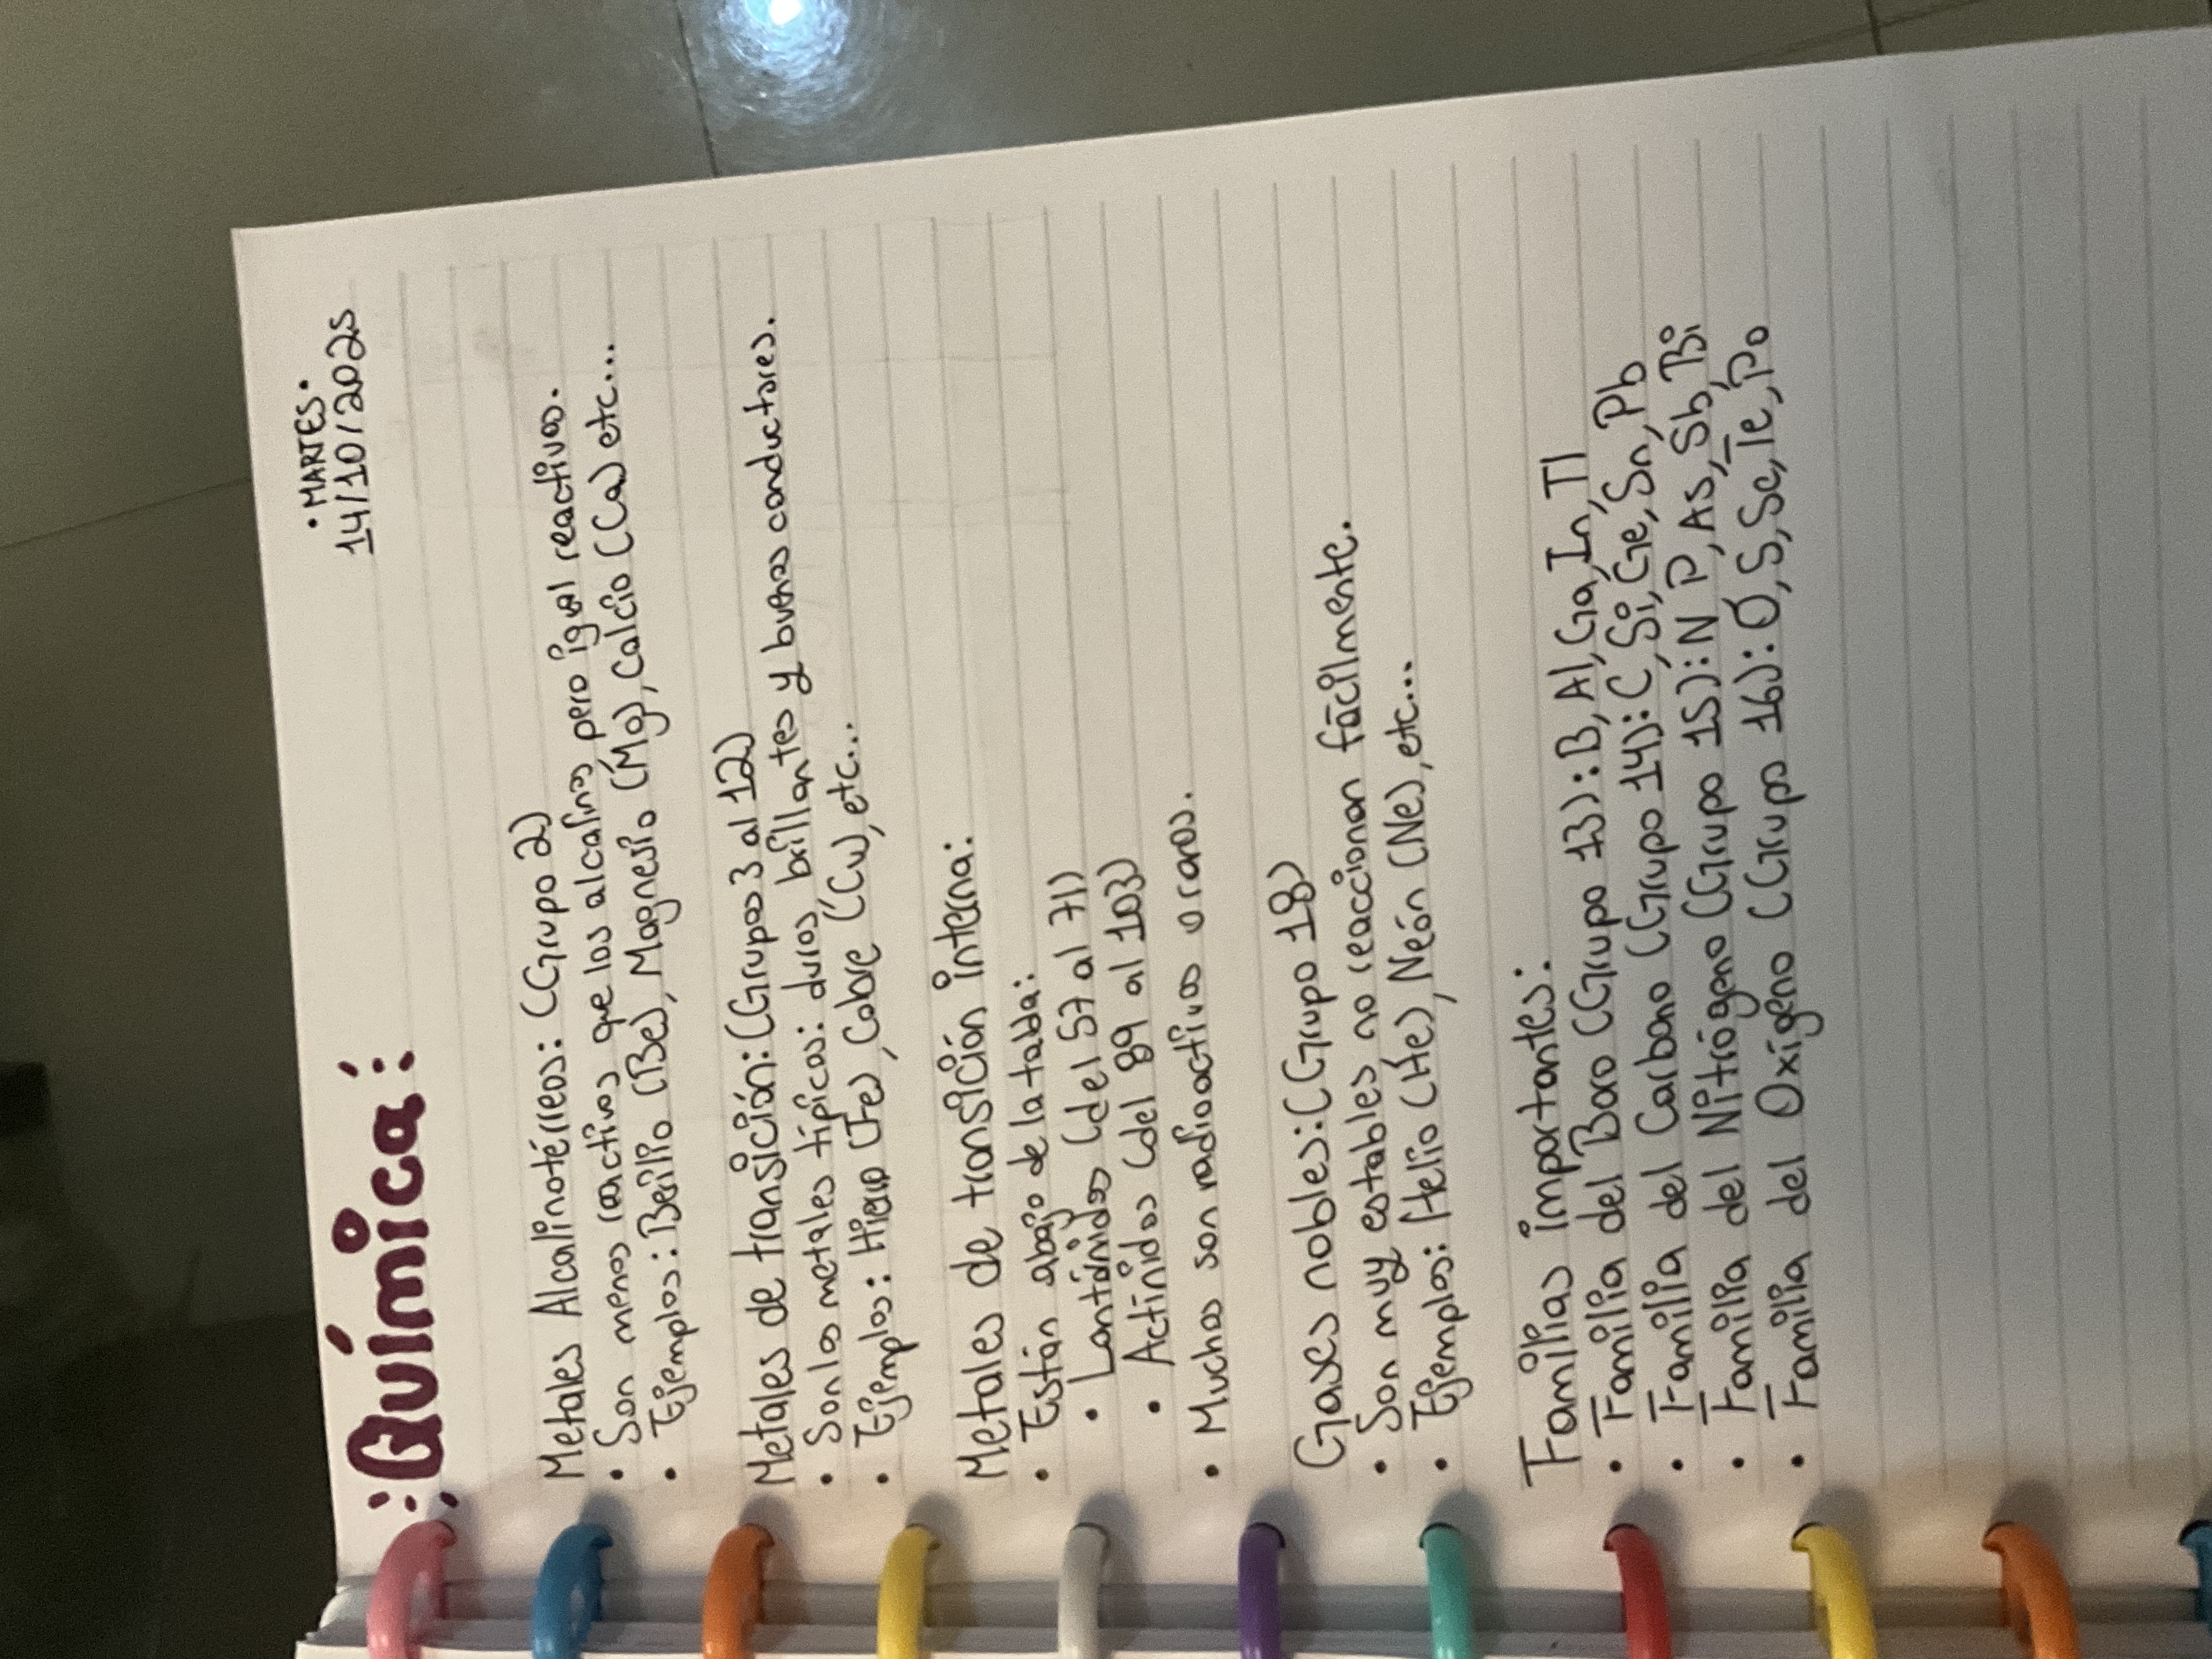 Química:
• MARTES •
14/10/2025
Metales Alcalinotérreos: (Grupo 2)
• Son menos reactivos que los alcalinos pero igual reactivos.
• Ejemplos: Berilio (Be), Magnesio (Mg), Calcio (Ca) etc...
Metales de transición: (Grupos 3 al 12)
• Son los metales típicos: duros, brillantes y buenos conductores.
• Ejemplos: Hierro (Fe), Cobre (Cu), etc...
Metales de transición interna:
• Están abajo de la tabla:
• Lantánidos (del 57 al 71)
• Actínidos (del 89 al 103)
• Muchos son radioactivos o raros.
Gases nobles: (Grupo 18)
• Son muy estables no reaccionan fácilmente.
• Ejemplos: Helio (He), Neón (Ne), etc...
Familias importantes:
• Familia del Boro (Grupo 13): B, Al, Ga, In, Tl
• Familia del Carbono (Grupo 14): C, Si, Ge, Sn, Pb
• Familia del Nitrógeno (Grupo 15): N P, As, Sb, Bi
• Familia del Oxígeno (Grupo 16): O, S, Se, Te, Po